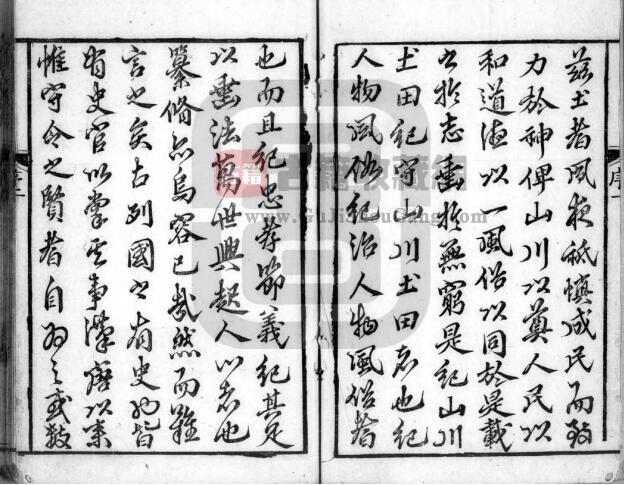 序一
茲土者夙夜祗慎成民而致
力於神俾山川以奠人民以
和道德以一風俗以同於是載
之於志垂於無窮是紀山川
土田紀守山川土田者也紀
人物風俗紀治人物風俗者
也而且紀忠孝節義紀其足
以垂法萬世興起人心者也
纂修亦烏容已哉然而難
言之矣古列國之有史也皆
有史官以掌其事漢唐以來
惟守令之賢者自為之或數
序二
古籍
www.GuJiShouCang.com